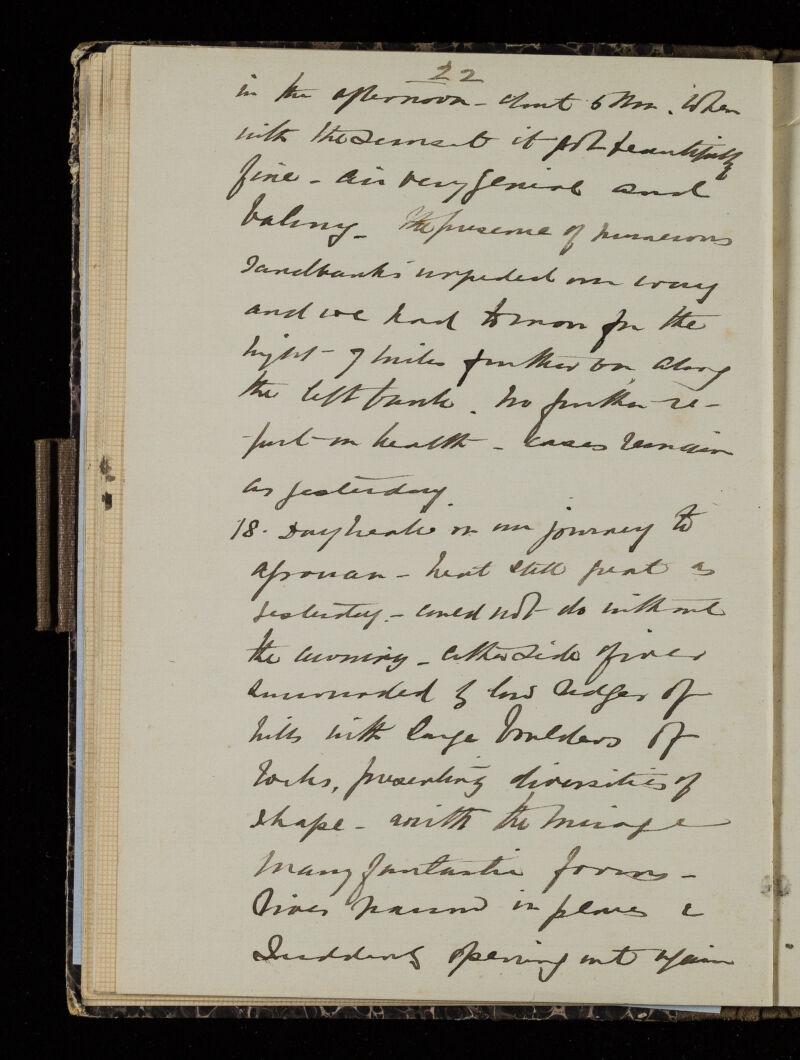 22
in the afternoon - about 6 Pm. When
with the sunset it got beautifully
fine - air very genial and
balmy - The presence of numerous
sandbanks impeded our way
and we had to moor for the
night - 7 miles further on along
the left bank. No further re-
port on health - cases remain
as yesterday.
18. Daybreak on our journey to
Assouan - heat still great as
yesterday - could not do without
the awning - either side of river
surrounded by low ridges of
hills with large boulders of
rocks, presenting diversities of
shape - with the mirage
many fantastic forms -
River narrow in places &
suddenly opening out again